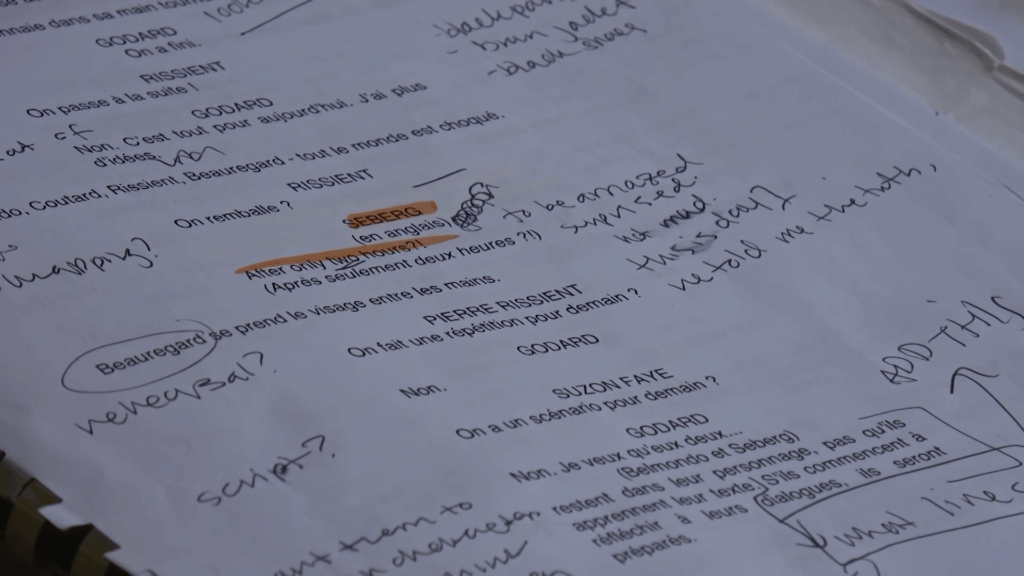 onnaie dans sa main tourn
GODARD
On a fini.
RISSIENT
On passe à la suite !
GODARD
Non. C'est tout pour aujourd'hui. J'ai plus
d'idées.
do, Coutard, Rissient, Beauregard - tout le monde est choqué.
RISSIENT
On remballe ?
SEBERG
(en anglais)
After only two hours?!
(Après seulement deux heures ?!)
Beauregard se prend le visage entre les mains.
PIERRE RISSIENT
On fait une répétition pour demain ?
GODARD
Non.
SUZON FAYE
On a un scénario pour demain ?
GODARD
Non. Je veux qu'eux deux...
(Belmondo et Seberg)
restent dans leur personnage, pas qu'ils
apprennent leur texte. S'ils commencent à
réfléchir à leurs dialogues, ils seront
préparés.
- black
- black shoes
wrapping?
to be amazed
suprised.
not mad.
this is day 1
he told me the truth,
rehearsal?
script?
ADD THIS
them to
character
what line